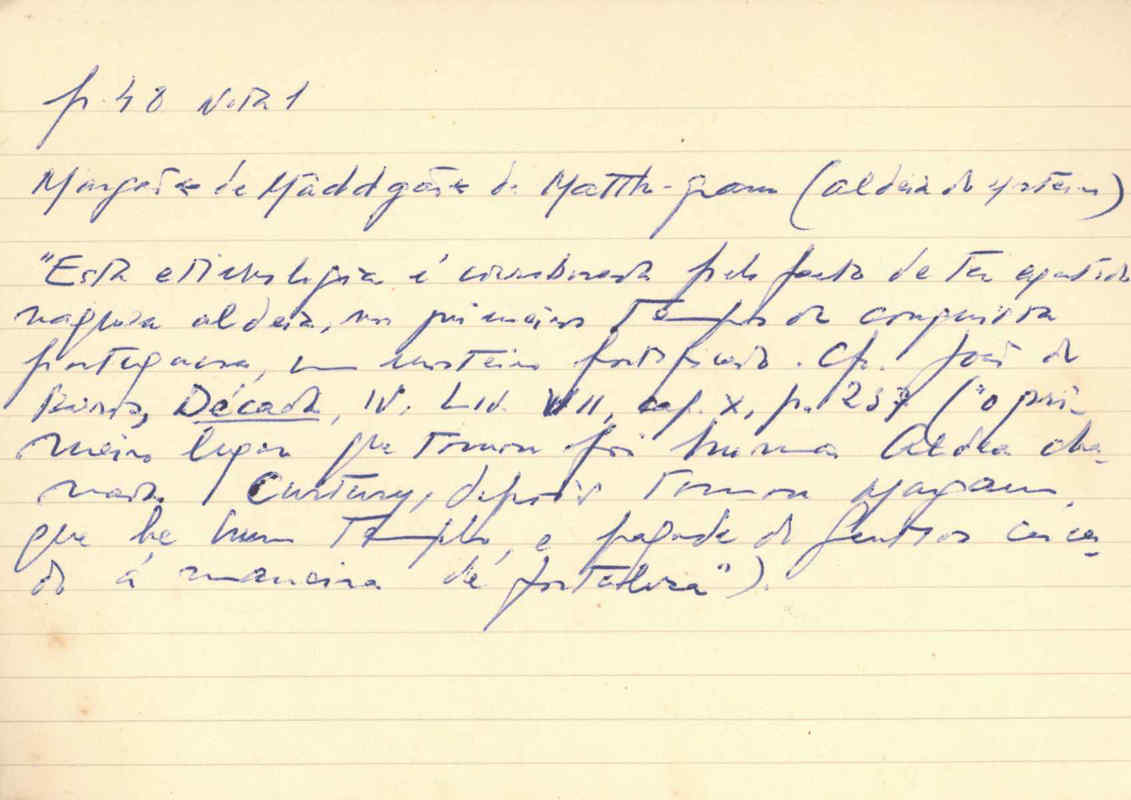 p. 48 Nota 1
Margão de Mâddgão de Matth-gram (aldeia do mosteiro)
"Esta etimologia é corroborada pelo facto de ter existido
naquela aldeia, nos primeiros tempos da conquista
portuguesa, um mosteiro fortificado. Cfr. João de
Barros, Década, IV. Liv. VII, cap. X, p. 237 ("o pri-
meiro lugar que tomou foi huma Aldea cha-
mada Curtury, depois tomou Margam,
que he hum Templo, e pagode de Gentios cerca-
do á maneira de fortaleza").